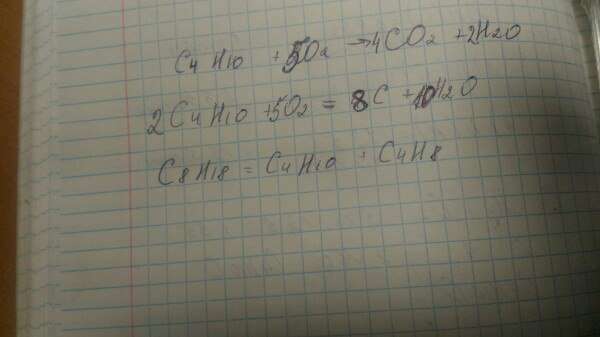 C4H10 + 5O2 → 4CO2 + 2H2O
2C4H10 + 5O2 = 8C + 10H2O
C8H18 = C4H10 + C4H8